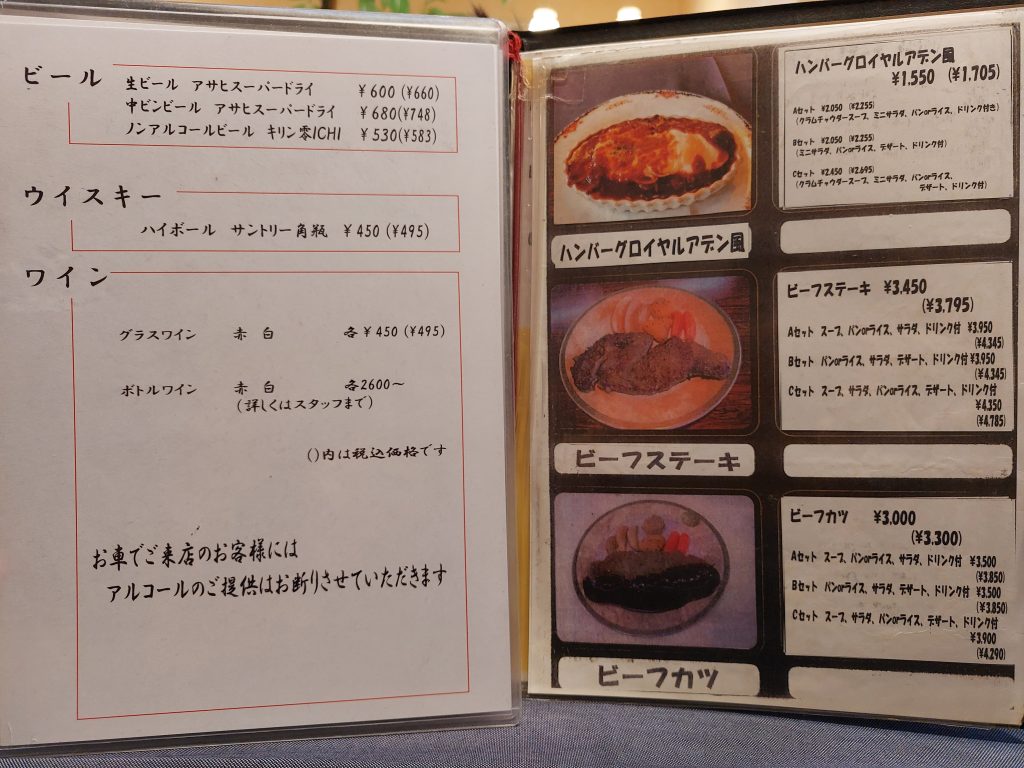 ビール
生ビール アサヒスーパードライ ¥600(¥660)
中ビンビール アサヒスーパードライ ¥680(¥748)
ノンアルコールビール キリン零ICHI ¥530(¥583)
ウイスキー
ハイボール サントリー角瓶 ¥450(¥495)
ワイン
グラスワイン 赤 白 各¥450(¥495)
ボトルワイン 赤 白 各2600〜
(詳しくはスタッフまで)
()内は税込価格です
お車でご来店のお客様には
アルコールのご提供はお断りさせていただきます
ハンバーグロイヤルアデン風
¥1.550 (¥1.705)
Aセット ¥2.050 (¥2.255)
(クラムチャウダースープ、ミニサラダ、パンorライス、ドリンク付き)
Bセット ¥2.050 (¥2.255)
(ミニサラダ、パンorライス、デザート、ドリンク付)
Cセット ¥2.450 (¥2.695)
(クラムチャウダースープ、ミニサラダ、パンorライス、
デザート、ドリンク付)
ハンバーグロイヤルアデン風
ビーフステーキ ¥3.450
(¥3.795)
Aセット スープ、パンorライス、サラダ、ドリンク付 ¥3.950
(¥4.345)
Bセット パンorライス、サラダ、デザート、ドリンク付 ¥3.950
(¥4.345)
Cセット スープ、サラダ、パンorライス、デザート、ドリンク付
¥4.350
(¥4.785)
ビーフステーキ
ビーフカツ ¥3.000
(¥3.300)
Aセット スープ、パンorライス、サラダ、ドリンク付 ¥3.500
(¥3.850)
Bセット パンorライス、サラダ、デザート、ドリンク付 ¥3.500
(¥3.850)
Cセット スープ、サラダ、パンorライス、デザート、ドリンク付
¥3.900
(¥4.290)
ビーフカツ